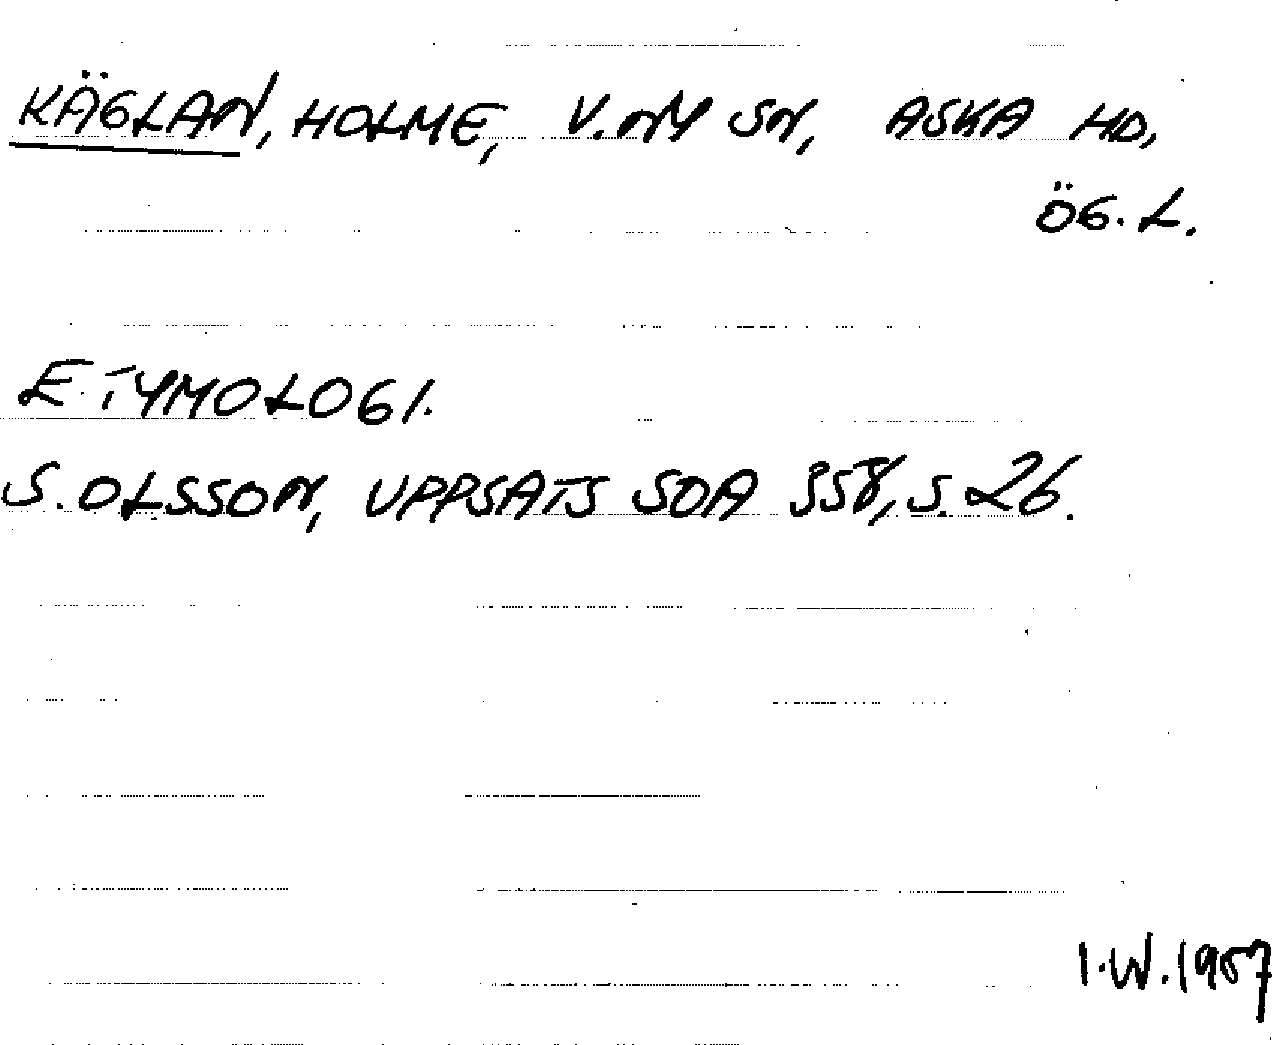 KÄGLAN, HOLME, V. NY SN, ASKA HD,
ÖG. L.
ETYMOLOGI.
S. OLSSON, UPPSATS SOA 358, S. 26.
I.W. 1987